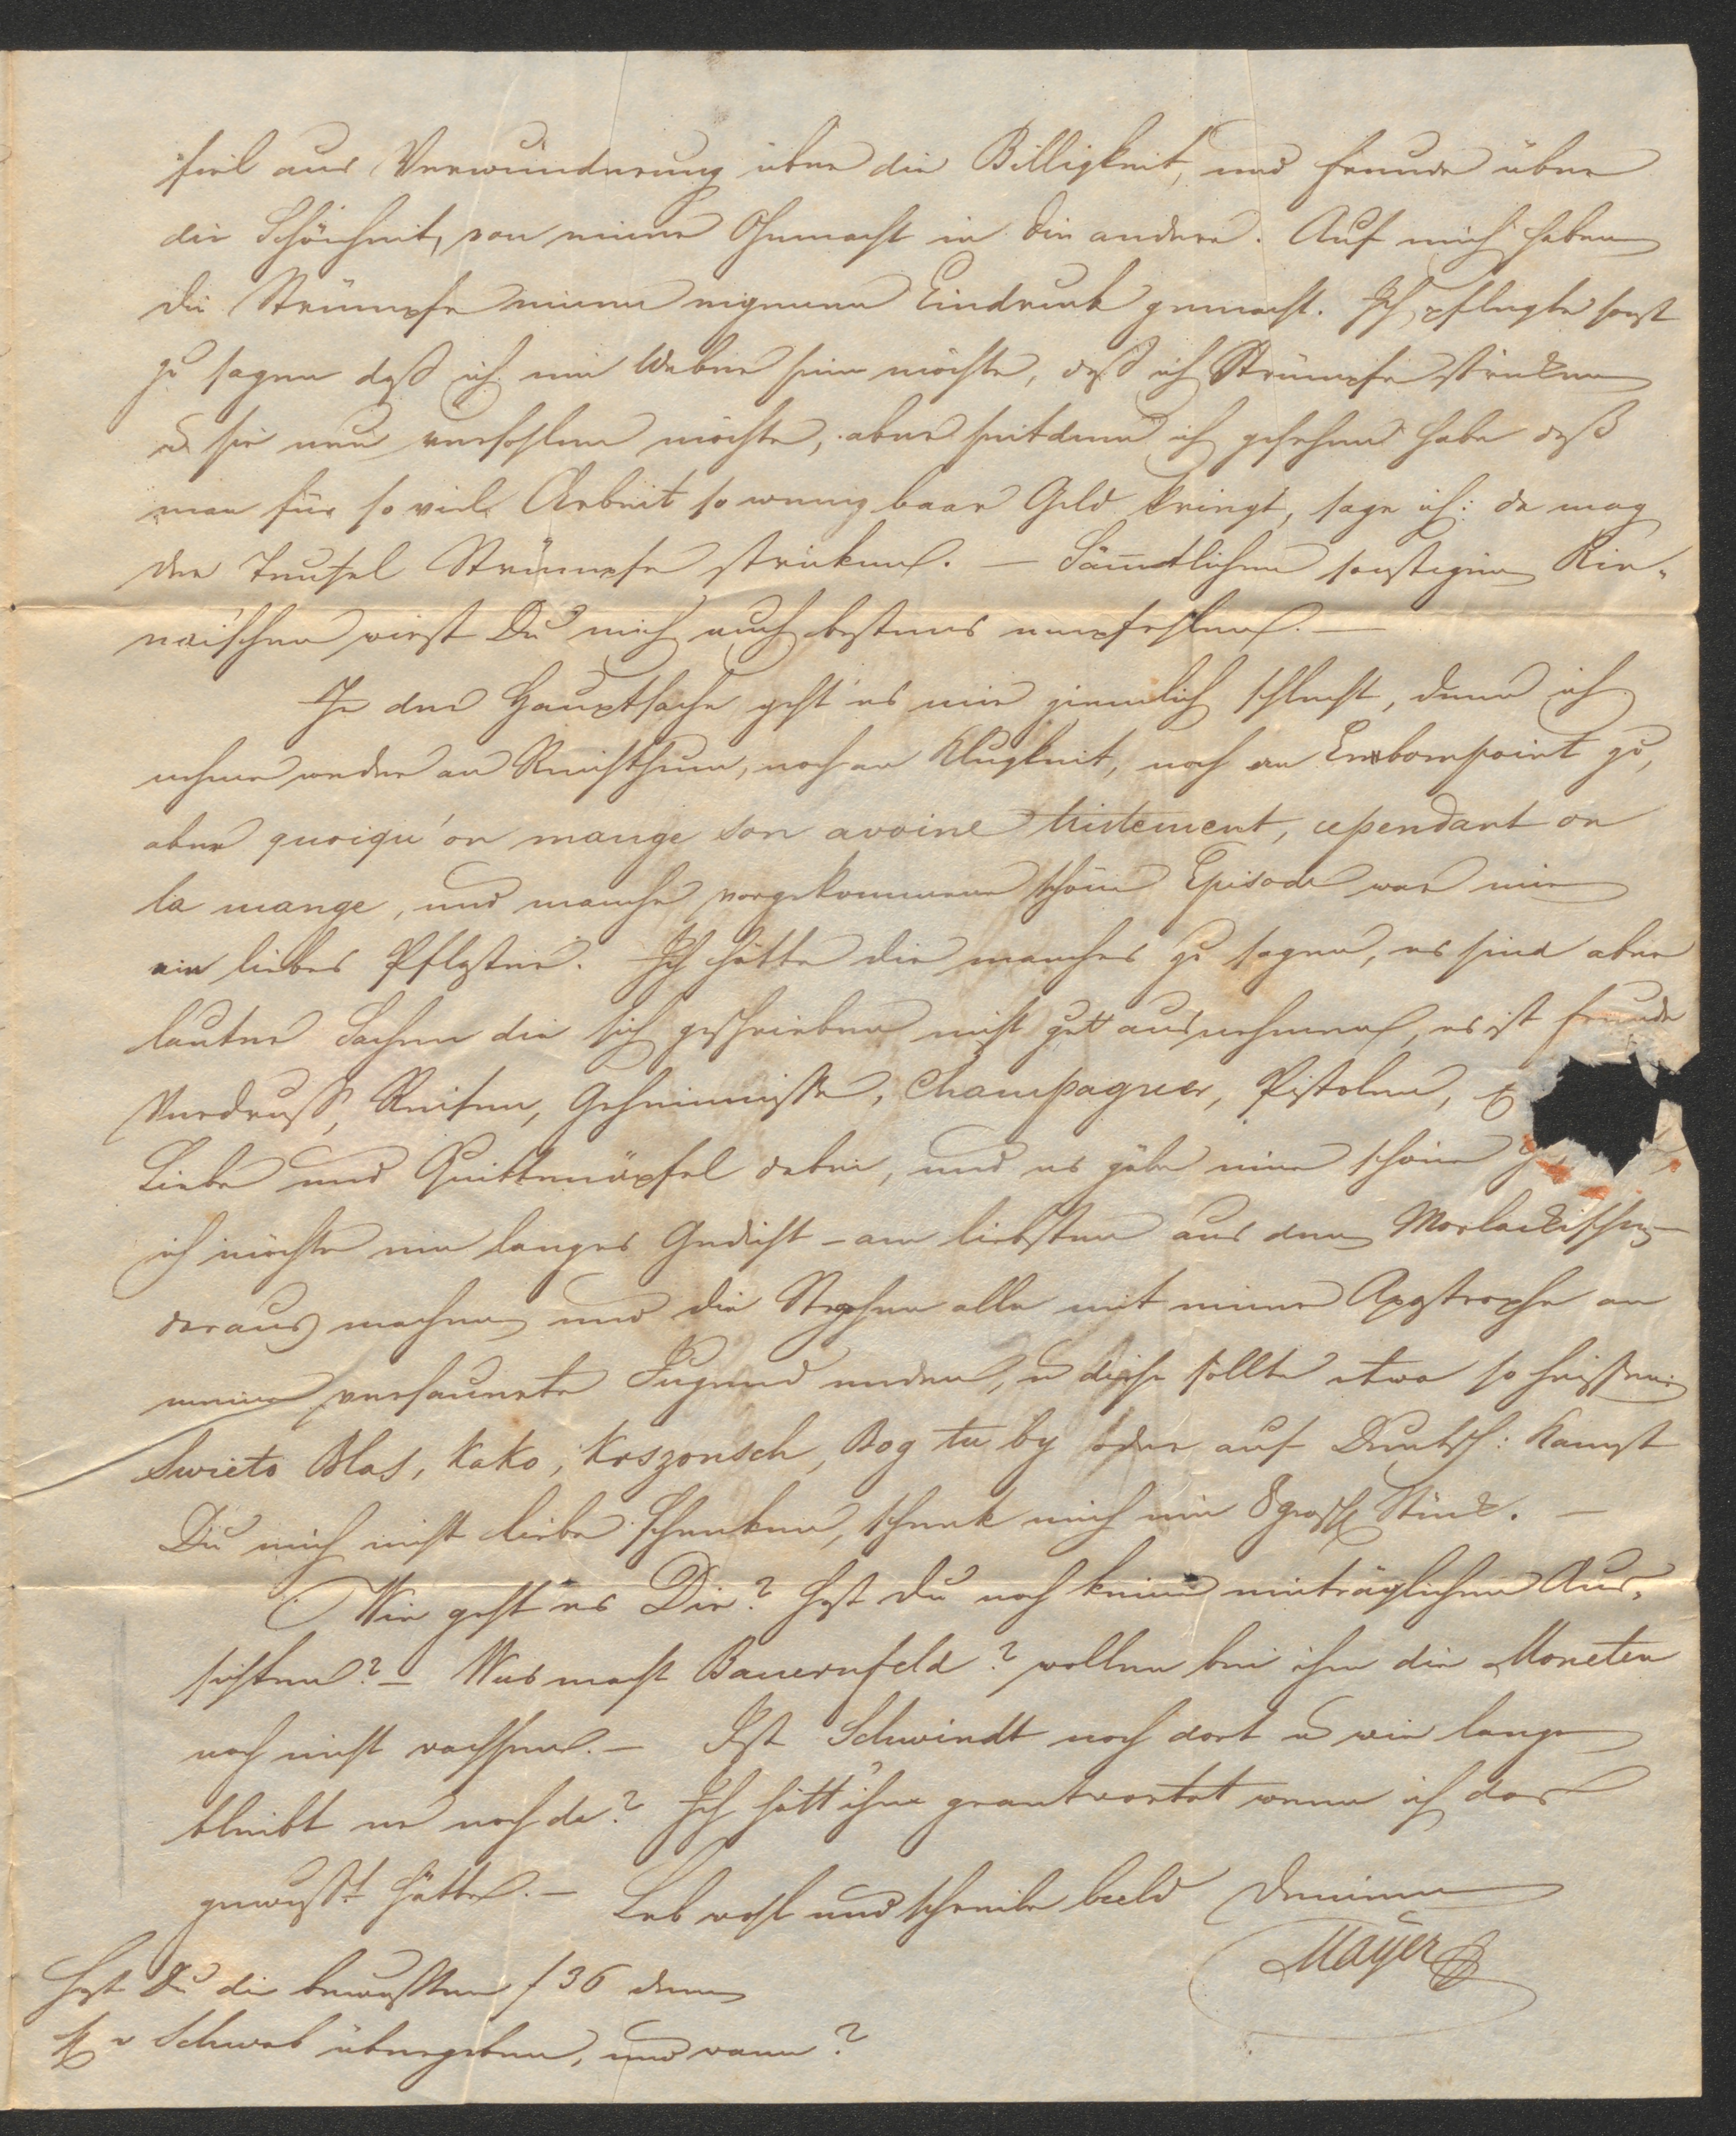 fiel aus Verwunderung über die Billigkeit, und Freude über
die Schönheit, von einer Ohnmacht in die andere. Auf mich haben
die Strümpfe einen eigenen Eindruck gemacht. Ich pflegte sonst
zu sagen daß ich ein Weber sein möchte, daß ich Strümpfe stricken
u sie neu versohlen möchte, aber seitdem ich gesehen habe daß
man für so viel Arbeit so wenig baar Geld kriegt, sage ich: da mag
der Teufel Strümpfe stricken. – Sämtlichen sonstigen
wirst Du mich auch bestens empfehlen. –
In der Hauptsache geht es mir ziemlich schlecht, denn ich
nehme weder an Reichthum, noch an Klugheit, noch an Embompoint zu,
aber quoiqu'on mange son avoine tristement, cependant on
la mange, und manche vorgekommene schöne Episode war mir
ein liebes Pflaster. Ich hätte dir manches zu sagen, es sind aber
lauter Sachen die sich geschrieben nicht gutt ausnehmen, es ist Freude
Verdruß, Reisen, Geheimnisse, Champagner, Pistolen,
Liebe und Quittenäpfel dabei, und es gäbe eine schöne
ich möchte ein langes Gedicht – am liebsten aus dem Morlackischen –
daraus machen und die Strophen alle mit einer Apostrophe an
meine versaunete Jugend enden, u diese sollte etwa so heißen
Swieto Blas, Kako, Krszonsch, Bog tu by oder auf Deutsch: Kannst
Du mich nicht liebe schenken, schenk mich ein 8 grosch Stück. –
Wie geht es Dir? hast du noch keine einträglichen Aus-
sichten? – Was macht Bauernfeld? wollen bei ihm die Moneten
noch nicht wachsen. – Ist Schwindt noch dort u wie lange
bleibt er noch da? Ich hätt ihm geantwortet wenn ich das
gewußt hätte. – Leb wohl und schreibe bald Deinem
Mayer
Hast Du die bewußten f 36 dem
H v Schwab übergeben, und wann?